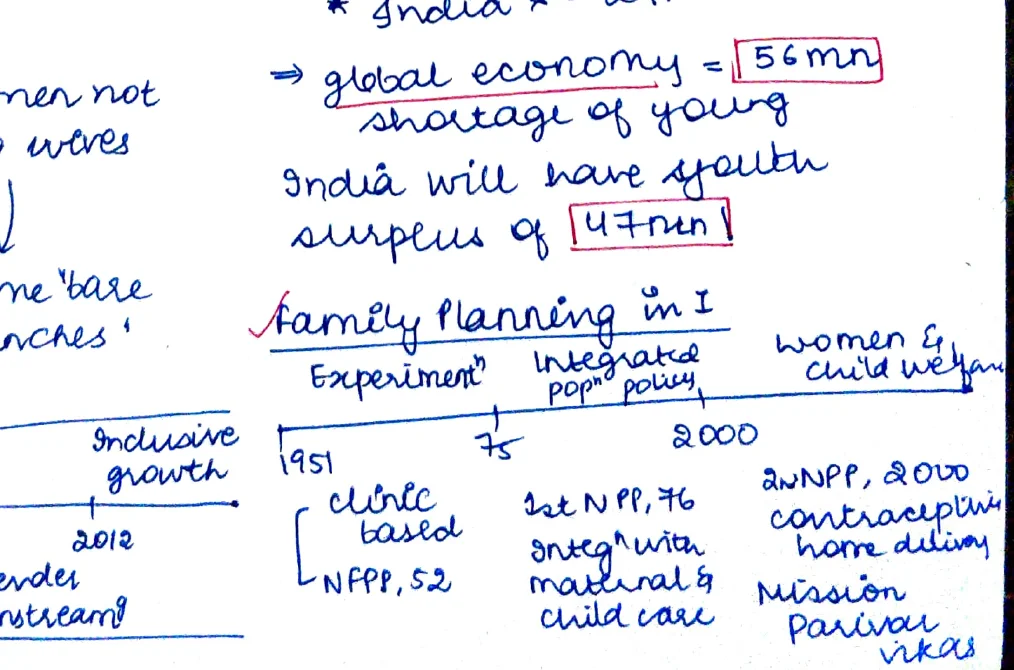 * India *
⇒ global economy = 56mn
shortage of young
India will have youth
surplus of 47mn!
men not
wives
"bare
nches'
Family Planning in I
Experimentⁿ
Integrated
popⁿ policy
women &
child welfare
1951
75
2000
clinic
based
NFPP, 52
1st NPP, 76
Integⁿ with
maternal &
child care
2nNPP, 2000
contraceptive
home delivery
Mission
Parivar
vikas
Inclusive
growth
2012
ender
nstreamg